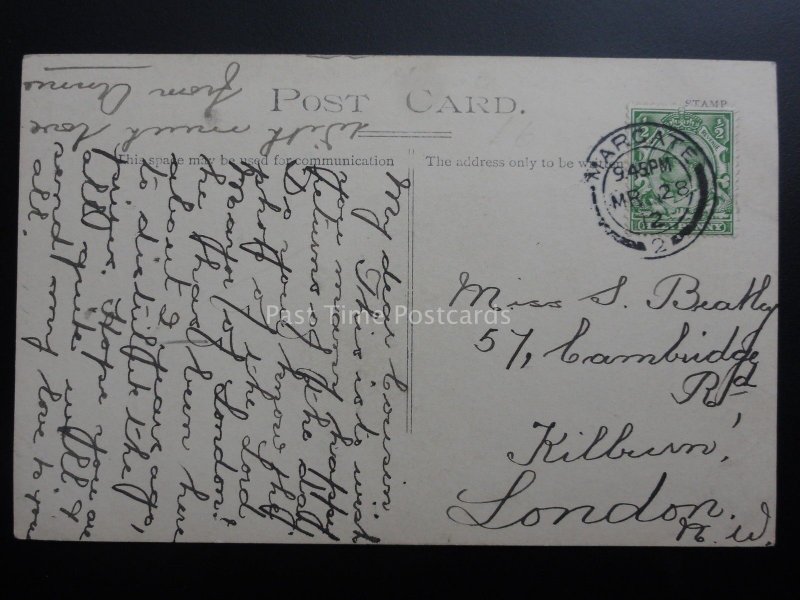 POST CARD.
This space may be used for communication
The address only to be written
STAMP
MARGATE
9.45PM
MR 28
12
2
Miss S. Beatly
57, Cambridge
Rd,
Kilburn,
London.
N.W.
My dear Cousin
This is to wish
you many happy
returns of the day.
Do you know the
photo of the Lord
Mayor of London?
he has been here
about 2 years ago,
to distribute the
prizes. Hope you are
all quite well &
send my love to you
all.
With much love
from Annie
Past Time Postcards